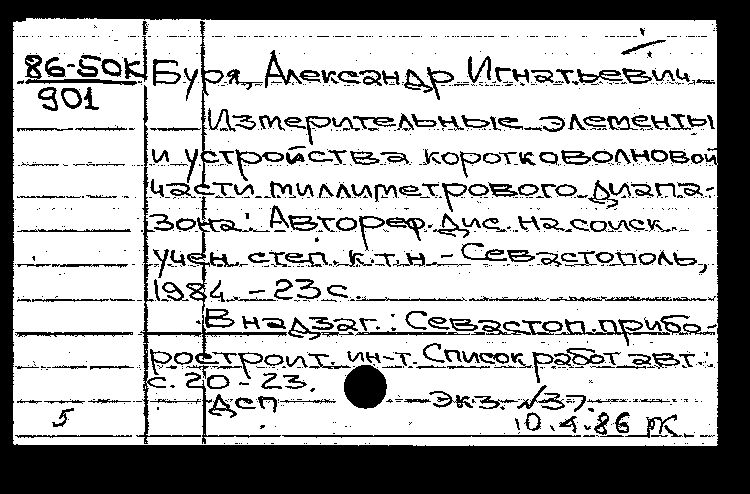 86-50К Буря, Александр Игнатьевич
901
Измерительные элементы
и устройства коротковолновой
части миллиметрового диапа-
зона: Автореф. дис. на соиск.
учен. степ. к.т.н. - Севастополь,
1984. - 23 с.
В надзаг.: Севастоп. прибо-
ростроит. ин-т. Список работ авт.:
с. 20-23.
ДСП Экз. №37.
5 10.4.86 РК